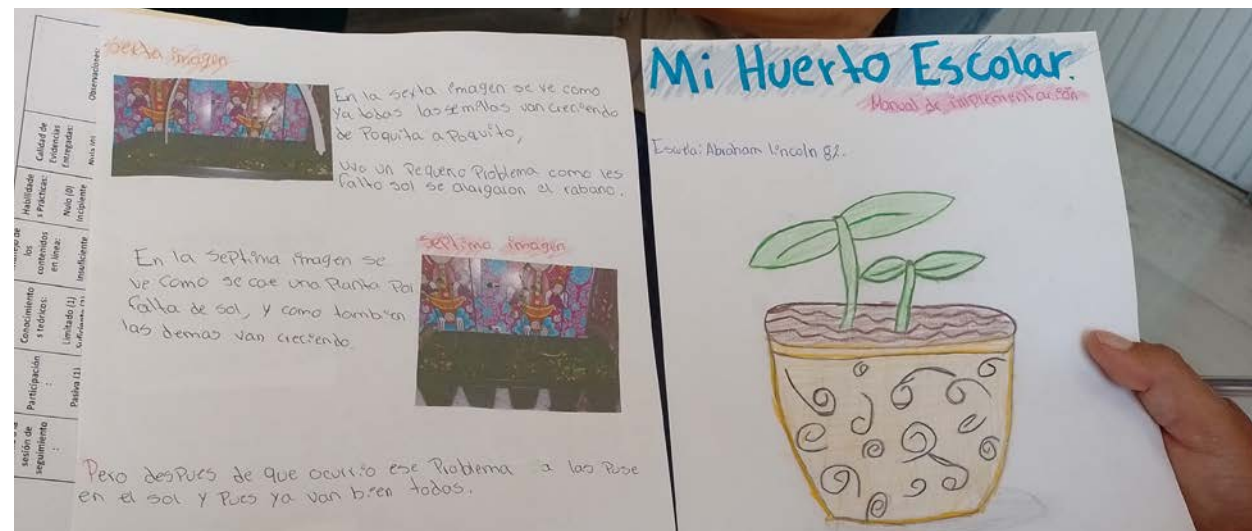 Observaciones:
Calidad de
Evidencias
Entregadas:
Habilidade
s Prácticas:
Nulo (0)
Incipiente
los
contenidos
en línea:
Insuficiente
Conocimiento
s teóricos:
Limitado (1)
Participación
:
Pasiva (1)
sesión de
seguimiento
:
Sexta imagen
En la sexta imagen se ve como
Ya todas las semillas van creciendo
de Poquita a Poquito,
Uvo un Pequeño Problema como les
falto sol se alargaron el rabano.
En la septima imagen se
ve como se cae una Planta Por
falta de sol, y como tambien
las demas van creciendo.
Septima imagen
Pero despues de que ocurrio ese Problema a las Puse
en el sol y Pues ya van bien todas.
Mi Huerto Escolar.
Manual de implementación
Escuela: Abraham Lincoln 82.